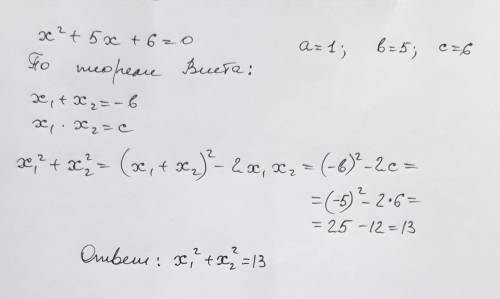 x² + 5x + 6 = 0    a = 1;  в = 5;  c = 6
По теореме Виета:
x₁ + x₂ = -в
x₁ · x₂ = c
x₁² + x₂² = (x₁ + x₂)² - 2x₁x₂ = (-в)² - 2c =
= (-5)² - 2·6 =
= 25 - 12 = 13
Ответ: x₁² + x₂² = 13